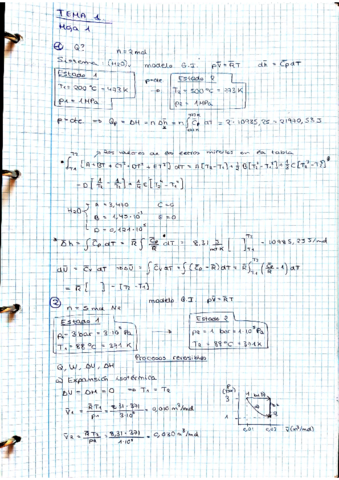 TEMA 1
Hoja 1
① Q?
n = 2 mol
Sistema: (H₂O), modelo G.I. pṽ = RT dh̃ = C̃p dT
Estado 1
T₁ = 200 °C = 473 K
p₁ = 1 MPa
p=cte →
Estado 2
T₂ = 500 °C = 773 K
p₂ = 1 MPa
p = cte ⇒ Qp = ΔH = n Δh̃ = n ∫ C̃p dT = 2 · 10985,25 = 21970,5 J
los valores de la tabla
* ∫ [A + BT + CT² + DT⁻² + ET³] dT = A[T₂-T₁] + ½ B[T₂²-T₁²] + ⅓ C[T₂³-T₁³]
H₂O
A = 3,470 C = 0
B = 1,45·10⁻³ E = 0
D = 0,121·10⁵
* Δh̃ = ∫ C̃p dT = R ∫ C̃p/R dT = 8,31 J/mol K [ ] = 10985,25 J/mol
dũ = C̃v dT ⇒ Δũ = ∫ C̃v dT = ∫ (C̃p - R) dT = R ∫ (C̃p/R - 1) dT
= R [ ] - [T₂ - T₁]
② modelo G.I. pṽ = RT
n = 5 mol N₂
Estado 1
p₁ = 3 bar = 3·10⁵ Pa
T₁ = 88 °C = 371 K
→
Estado 2
p₂ = 1 bar = 1·10⁵ Pa
T₂ = 88 °C = 371 K
Procesos reversibles
Q, W, ΔU, ΔH
a) Expansión isotérmica
ΔU = ΔH = 0 ⇒ T₁ = T₂
ṽ₁ = RT₁/p₁ = 8,31·371/3·10⁵ = 0,010 m³/mol
ṽ₂ = RT₂/p₂ = 8,31·371/1·10⁵ = 0,030 m³/mol
3
1
0,01 0,03 ṽ(m³/mol)